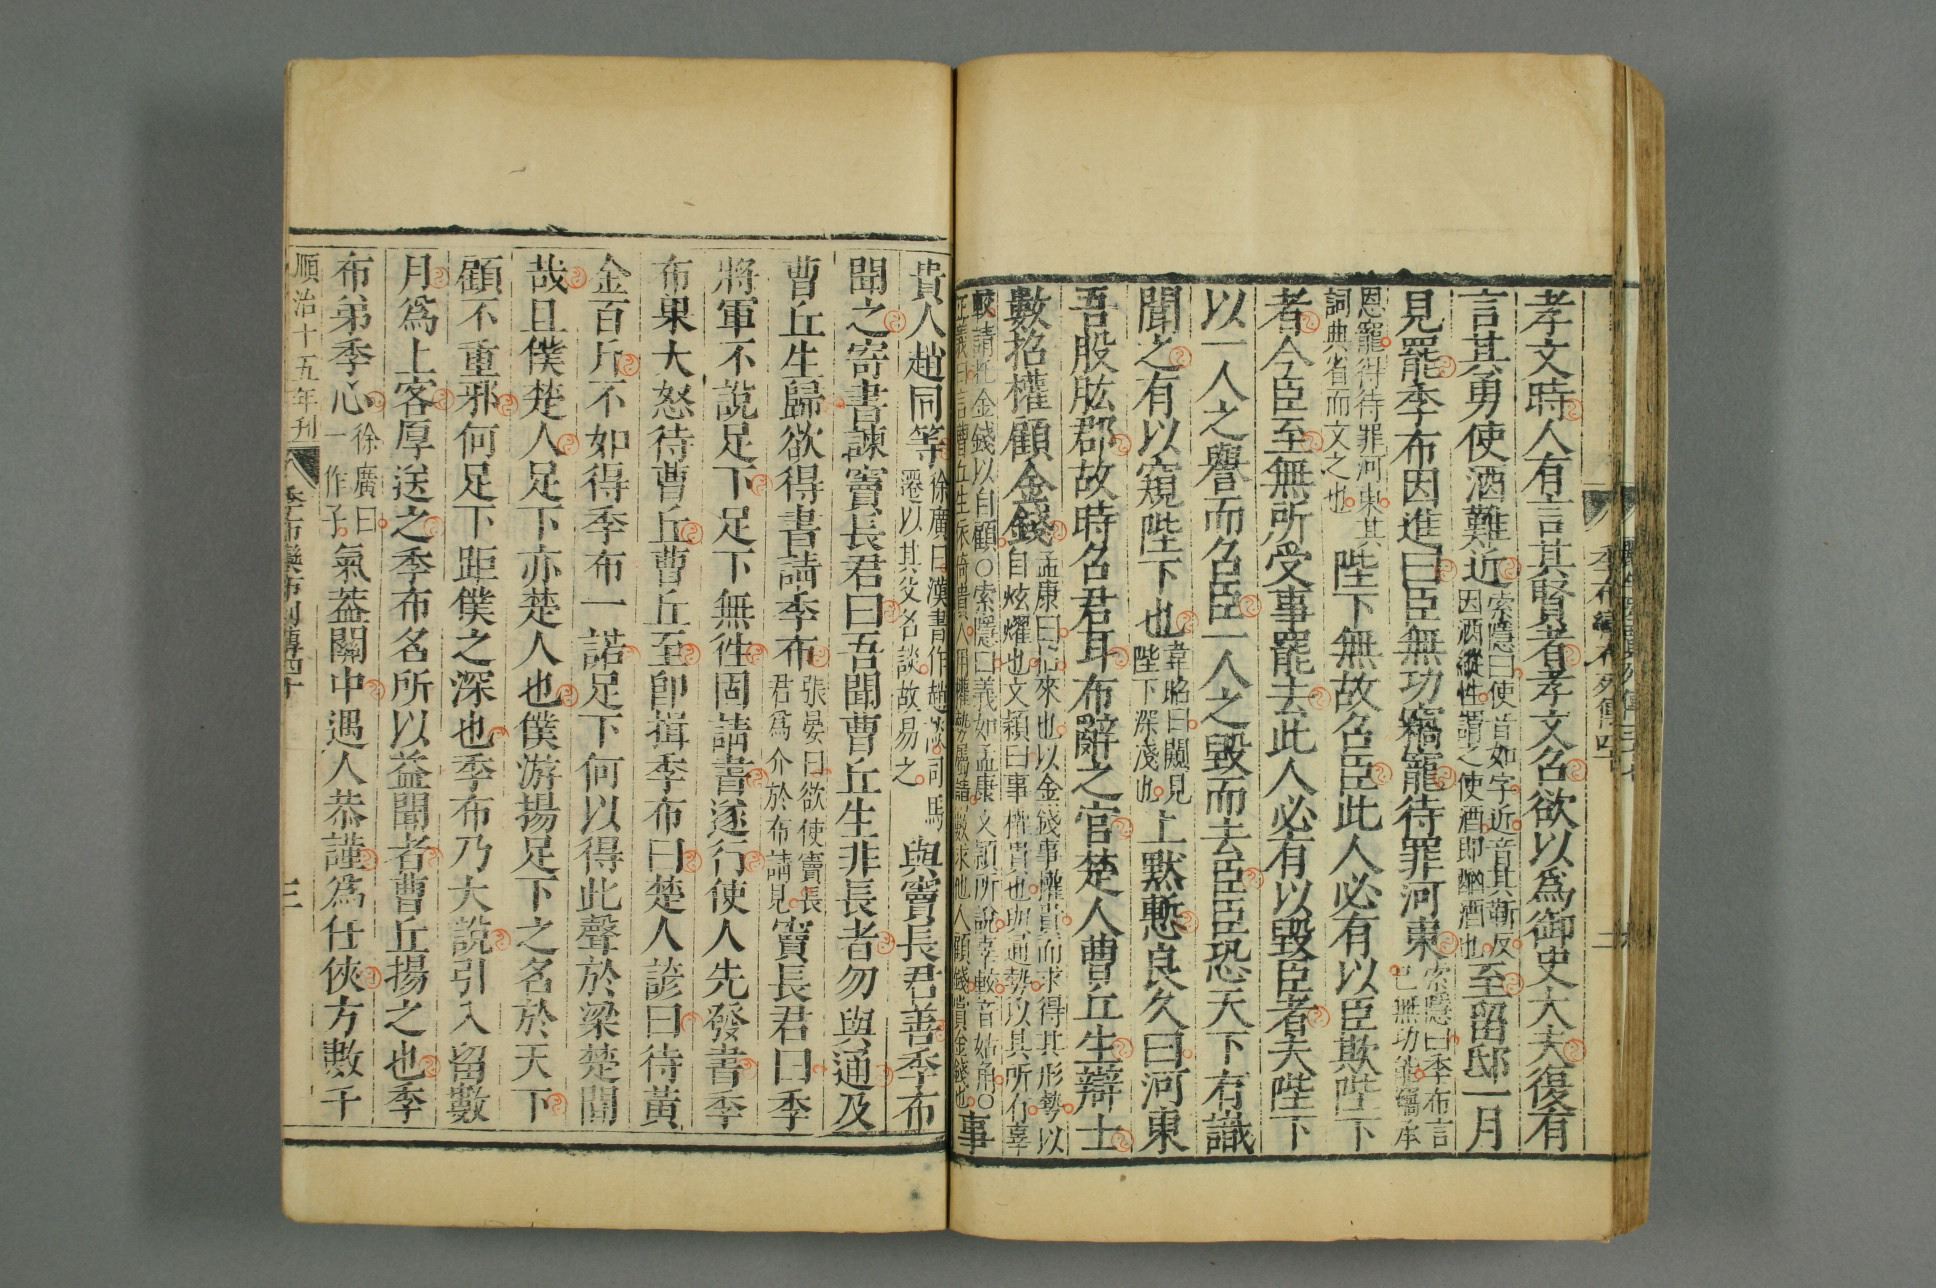 孝文時人有言其賢者孝文召欲以爲御史大夫復有
言其勇使酒難近
索隱曰使音如字近音其靳反
因酒縱性謂之使酒即酗酒也
至留邸一月
見罷季布因進曰臣無功竊寵待罪河東
索隱曰季布言
已無功能竊承
恩寵得待罪河東其
詞典省而文之也
陛下無故召臣此人必有以臣欺陛下
者今臣至無所受事罷去此人必有以毀臣者夫陛下
以一人之譽而召臣一人之毀而去臣臣恐天下有識
聞之有以窺陛下也
韋昭曰闚見
陛下深淺也
上默慙良久曰河東
吾股肱郡故時召君耳布辭之官楚人曹丘生辯士
數招權顧金錢
孟康曰招來也以金錢事權貴而求得其形勢以
自炫燿也文穎曰事權貴也與通勢以其所有辜
較請託金錢以自顧○索隱曰義如孟康文穎所說辜較音姑角○
事
貴人趙同等
徐廣曰漢書作趙談司馬
遷以其父名談故易之
與竇長君善季布
聞之寄書諫竇長君曰吾聞曹丘生非長者勿與通及
曹丘生歸欲得書請季布
張晏曰欲使竇長
君爲介於布請見
竇長君曰季
將軍不說足下足下無徃固請書遂行使人先發書季
布果大怒待曹丘曹丘至即揖季布曰楚人諺曰得黃
金百斤不如得季布一諾足下何以得此聲於梁楚間
哉且僕楚人足下亦楚人也僕游揚足下之名於天下
顧不重邪何足下距僕之深也季布乃大說引入留數
月爲上客厚送之季布名所以益聞者曹丘揚之也季
布弟季心
徐廣曰
一作子
氣蓋關中遇人恭謹爲任俠方數千
順治十五年刊
季布欒布列傳四十
三